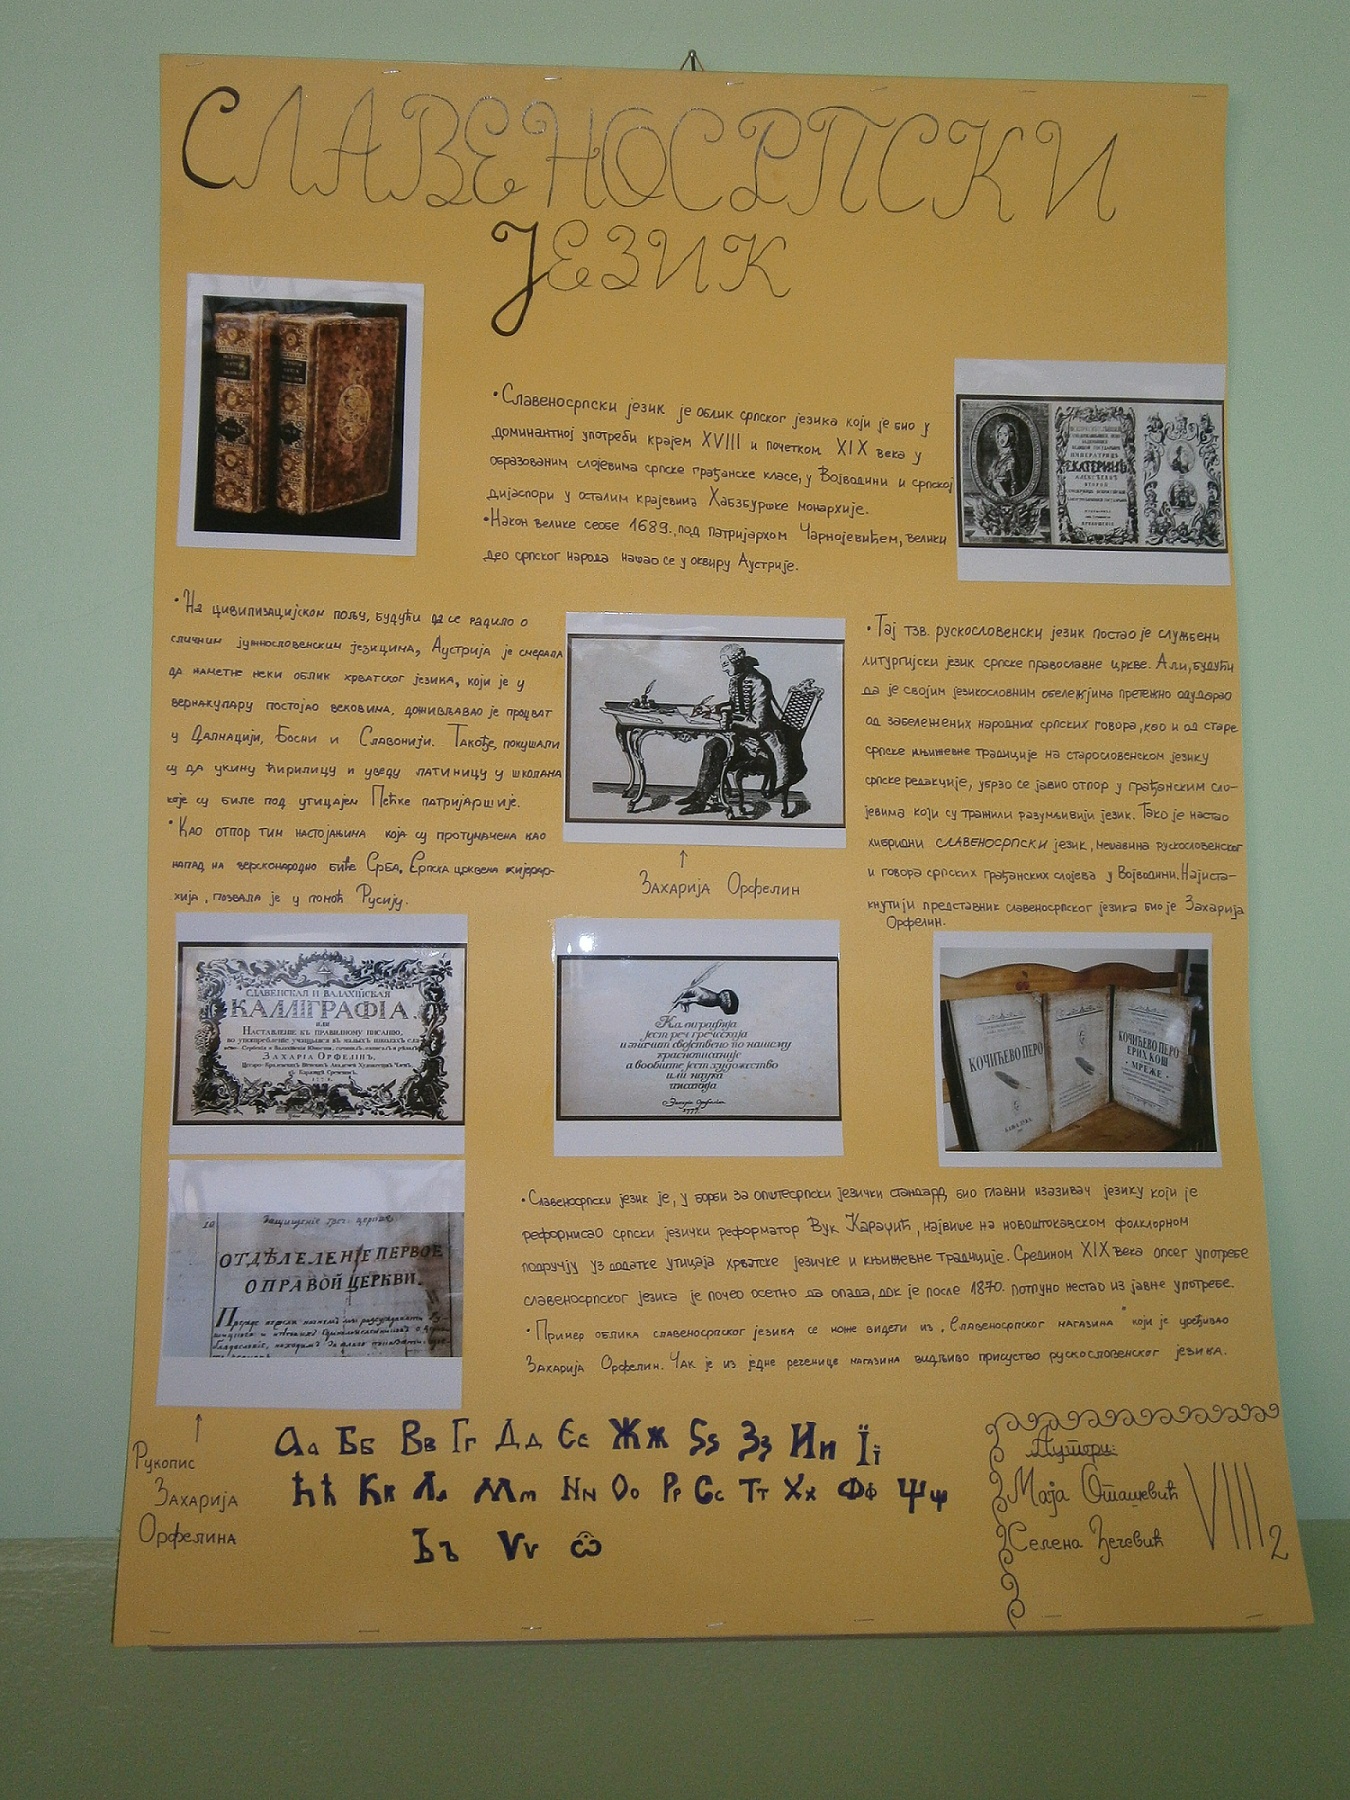 СЛАВЕНОСРПСКИ
ЈЕЗИК
•Славеносрпски језик је облик српског језика који је био у
доминантној употреби крајем XVIII и почетком XIX века у
образованим слојевима српске грађанске класе, у Војводини и српској
дијаспори у осталим крајевима Хабзбуршке монархије.
•Након велике сеобе 1689., под патријархом Чарнојевићем, велики
део српског народа нашао се у оквиру Аустрије.
ЕКАТЕРИНЪ
•На цивилизацијском пољу, будући да се радило о
сличним јужнословенским језицима, Аустрија је смерала
да наметне неки облик хрватског језика, који је у
вернакулару постојао вековима, доживљавао је процват
у Далмацији, Босни и Славонији. Такође, покушали
су да укину ћирилицу и уведу латиницу у школама
које су биле под утицајем Пећке патријаршије.
•Као отпор тим настојањима која су протумачена као
напад на версконародно биће Срба, Српска црквена хијерар-
хија, позвала је у помоћ Русију.
↑
Захарија Орфелин
•Тај тзв. рускословенски језик постао је службени
литургијски језик српске православне цркве. Али, будући
да је својим језикословним обележјима претежно одударао
од забележених народних српских говора, као и од старе
српске књижевне традиције на старословенском језику
српске редакције, убрзо се јавио отпор у грађанским сло-
јевима који су тражили разумљивији језик. Тако је настао
хибридни СЛАВЕНОСРПСКИ језик, мешавина рускословенског
и говора српских грађанских слојева у Војводини. Најиста-
кнутији представник славеносрпског језика био је Захарија
Орфелин.
СЛАВЕНСКАЯ И ВАЛАХІЙСКАЯ
КАЛЛІГРАФІА.
или
НАСТАВЛЕНІЕ КЪ ПРАВИЛНОМУ ПИСАНІЮ,
ЗАХАРІА ОРФЕЛІНЪ,
Калиграфија
јест реч греческаја
и значит својствено по нашему
краснописаније
а вообште јест художество
или наука
писанија
Захарија Орфелин
1777
КОЧИЋЕВО ПЕРО
КОЧИЋЕВО ПЕРО
ЕРИХ КОШ
• МРЕЖЕ •
ОТДѢЛЕЛЕНІЕ ПЕРВОЕ
О ПРАВОЙ ЦЕРКВИ.
•Славеносрпски језик је, у борби за општесрпски језички стандард, био главни изазивач језику који је
реформисао српски језички реформатор Вук Караџић, највише на новоштокавском фолклорном
подручју уз додатке утицаја хрватске језичке и књижевне традиције. Средином XIX века опсег употребе
славеносрпског језика је почео осетно да опада, док је после 1870. потпуно нестао из јавне употребе.
•Пример облика славеносрпског језика се може видети из „Славеносрпског магазина" који је уређивао
Захарија Орфелин. Чак је из једне реченице магазина видљиво присуство рускословенског језика.
↑
Рукопис
Захарија
Орфелина
Аа Бб Вв Гг Дд Єє Жж Ѕѕ Зз Ии Її
Ћћ Кк Лл Мм Nn Оо Рр Сс Тт Хх Фф Ѱѱ
Ъъ Vv ѽ
Аутори:
Маја Оташевић
Селена Зечевић
VIII2